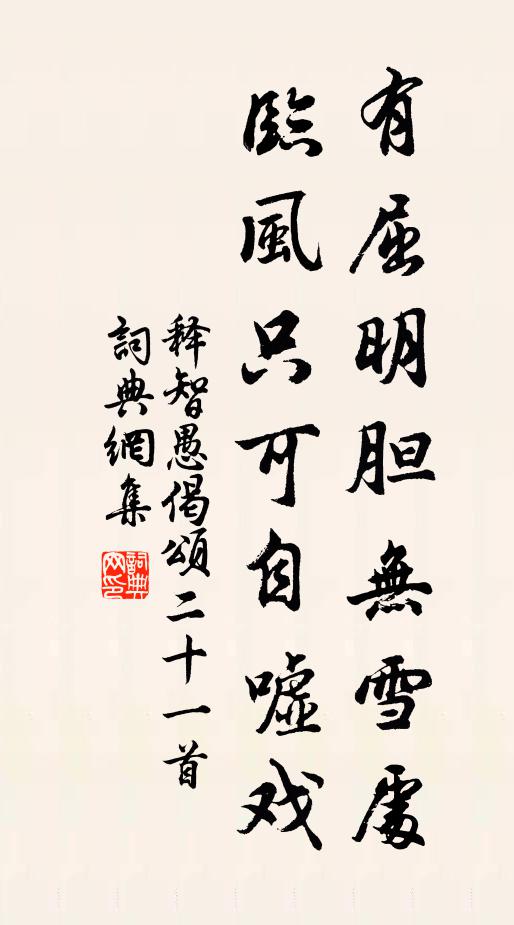 有屈明胆無雪處
臨風只可自嘘戏
释智愚偈頌二十一首
詞典網集
詞典网印